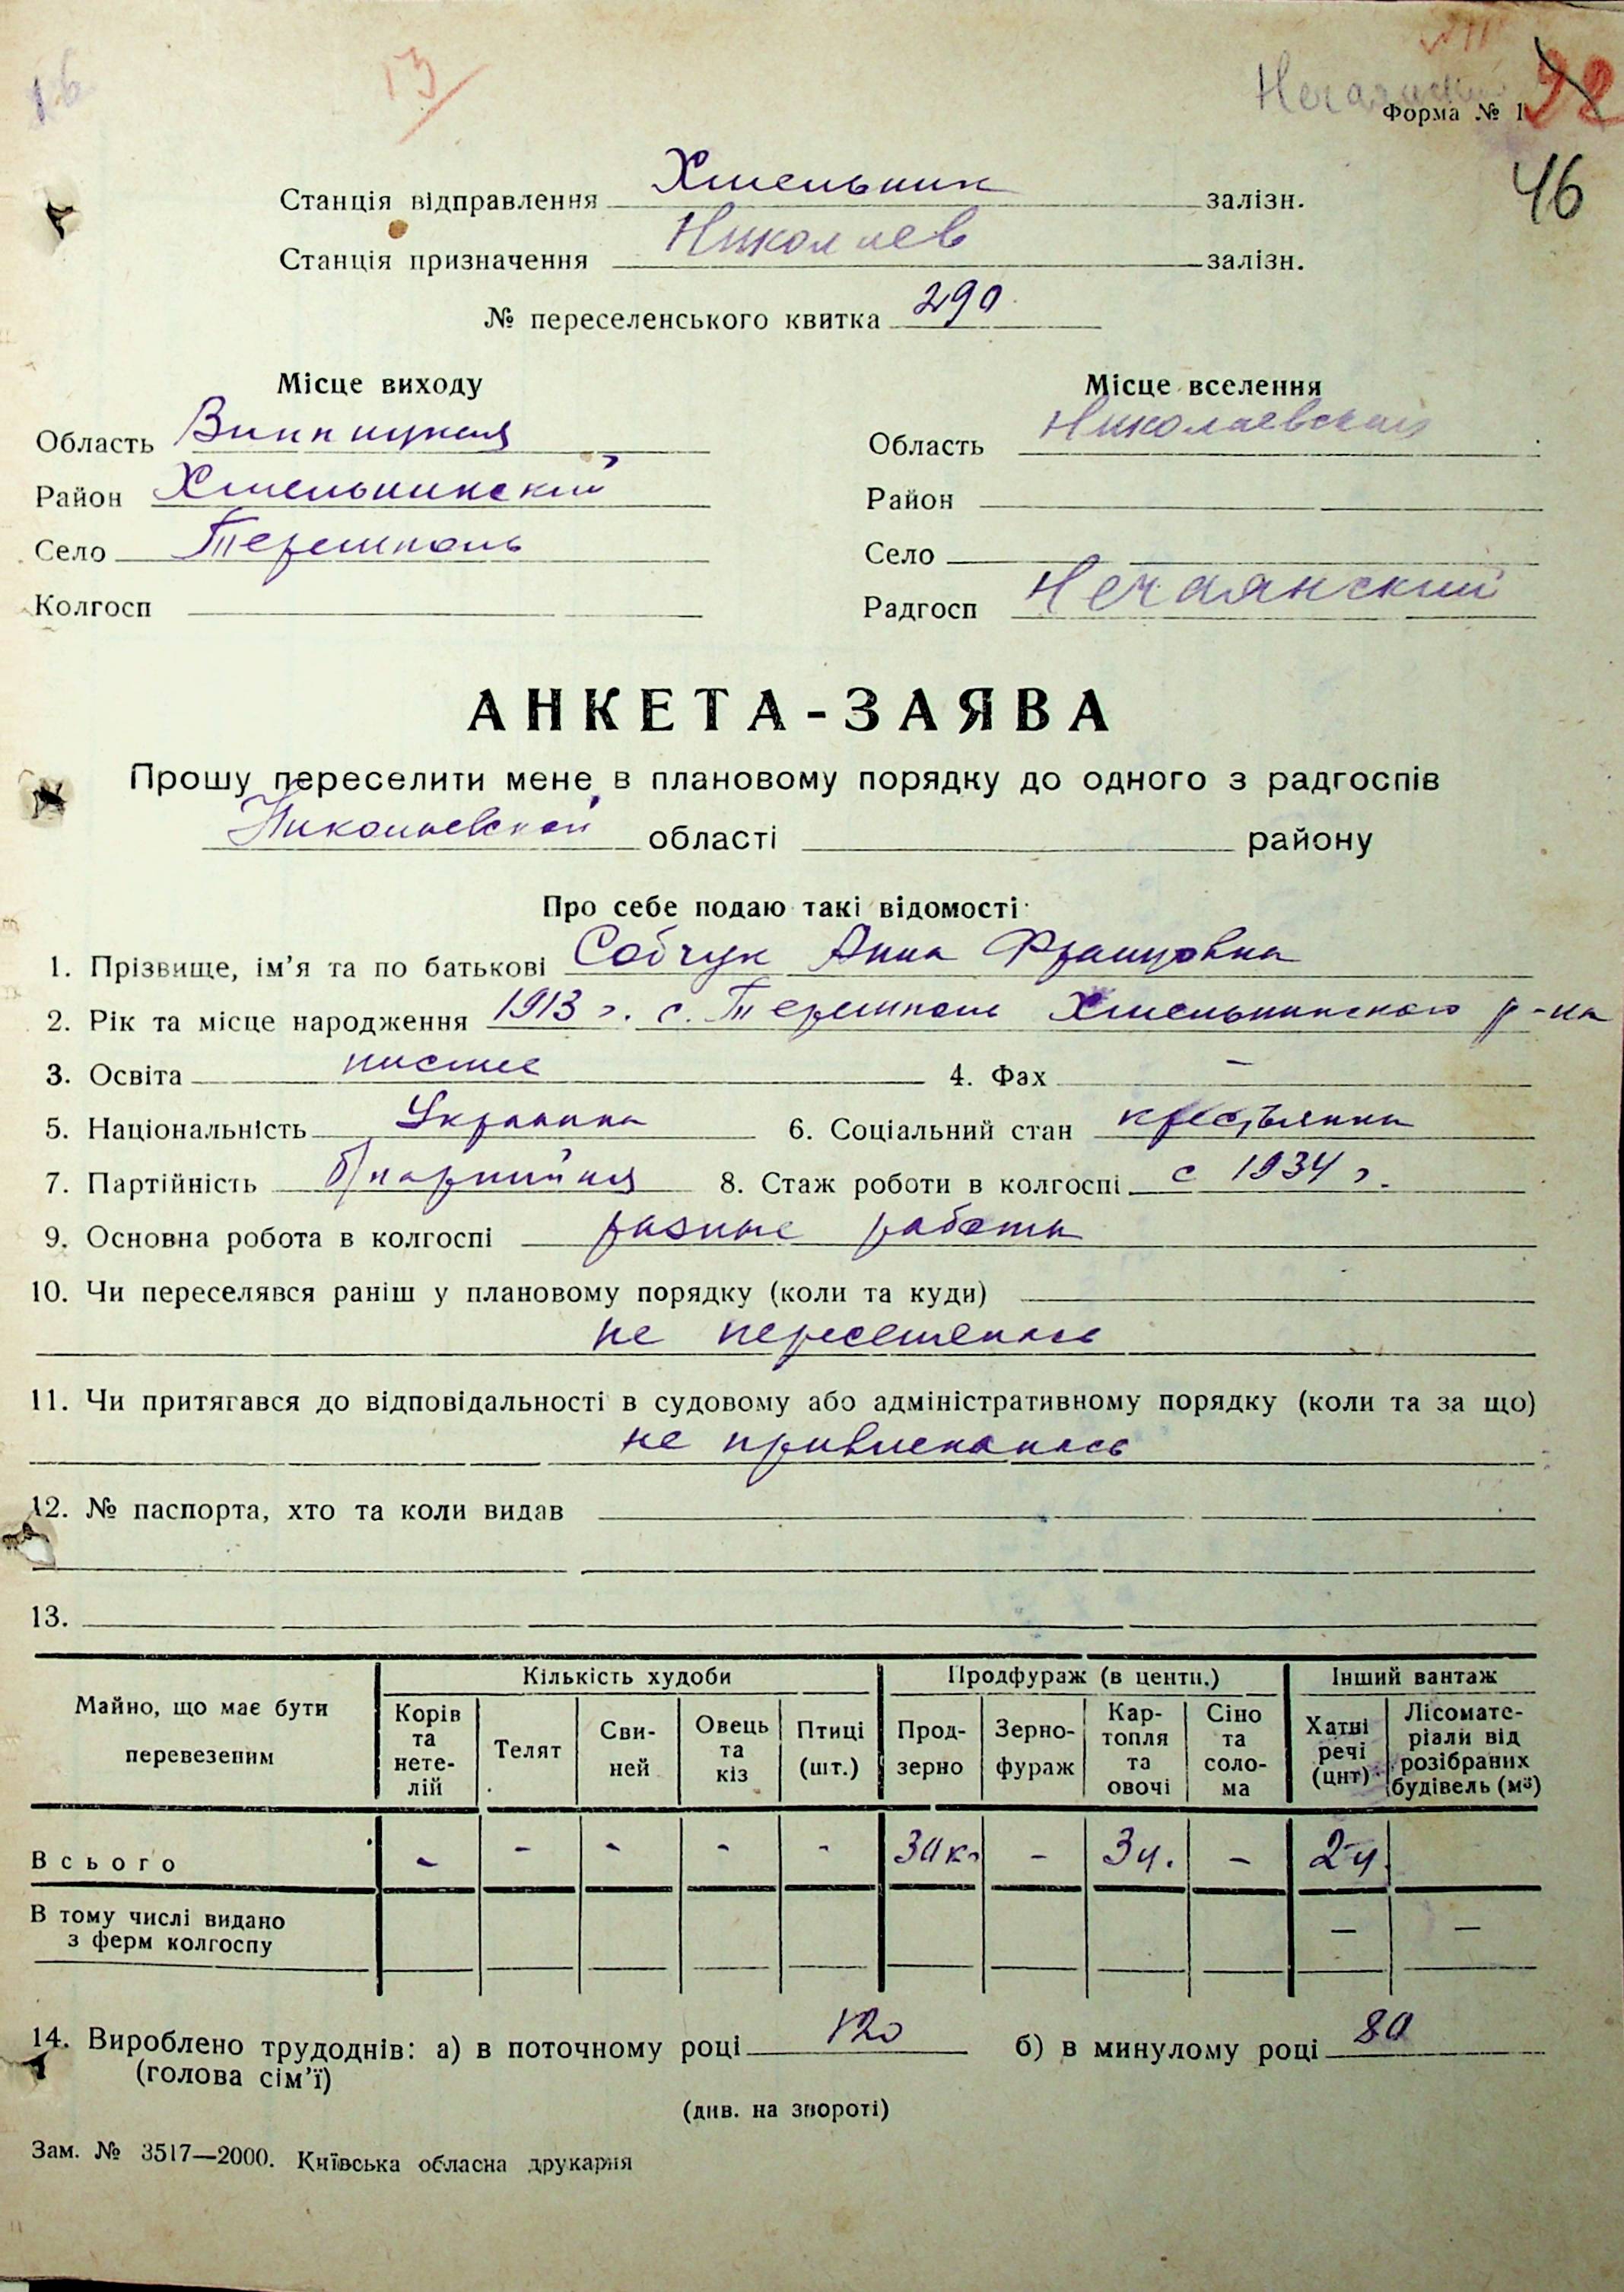 16
13/
Нечаянский
92
Форма № 1
46
Станція відправлення Хмельник залізн.
Станція призначення Николаев залізн.
№ переселенського квитка 290
Місце виходу Місце вселення
Область Винницкая Область Николаевская
Район Хмельникский Район
Село Терешполь Село
Колгосп Радгосп Нечаянский
АНКЕТА-ЗАЯВА
Прошу переселити мене в плановому порядку до одного з радгоспів
Николаевской області района району
Про себе подаю такі відомості
1. Прізвище, ім’я та по батькові Собчук Анна Францовна
2. Рік та місце народження 1913 г. с. Терешполь Хмельникского р-на
3. Освіта низшее 4. Фах –
5. Національність Украинка 6. Соціальний стан крестьянка
7. Партійність б/партийная 8. Стаж роботи в колгоспі с 1934 г.
9. Основна робота в колгоспі разные работы
10. Чи переселявся раніш у плановому порядку (коли та куди)
не переселялась
11. Чи притягався до відповідальності в судовому або адміністративному порядку (коли та за що)
не привлекалась
12. № паспорта, хто та коли видав
13.
Майно, що має бути перевезеним Кількість худоби Продфураж (в центн.) Інший вантаж
Корів та нете-лій Телят Сви-ней Овець та кіз Птиці (шт.) Прод-зерно Зерно-фураж Кар-топля та овочі Сіно та соло-ма Хатні речі (цнт) Лісомате-ріали від розібраних будівель (м³)
Всього - - - - - 30 кг - 3 ц. - 2 ц.
В тому числі видано з ферм колгоспу — —
14. Вироблено трудоднів: а) в поточному році 120 б) в минулому році 80
(голова сім’ї)
(див. на звороті)
Зам. № 3517—2000. Київська обласна друкарня